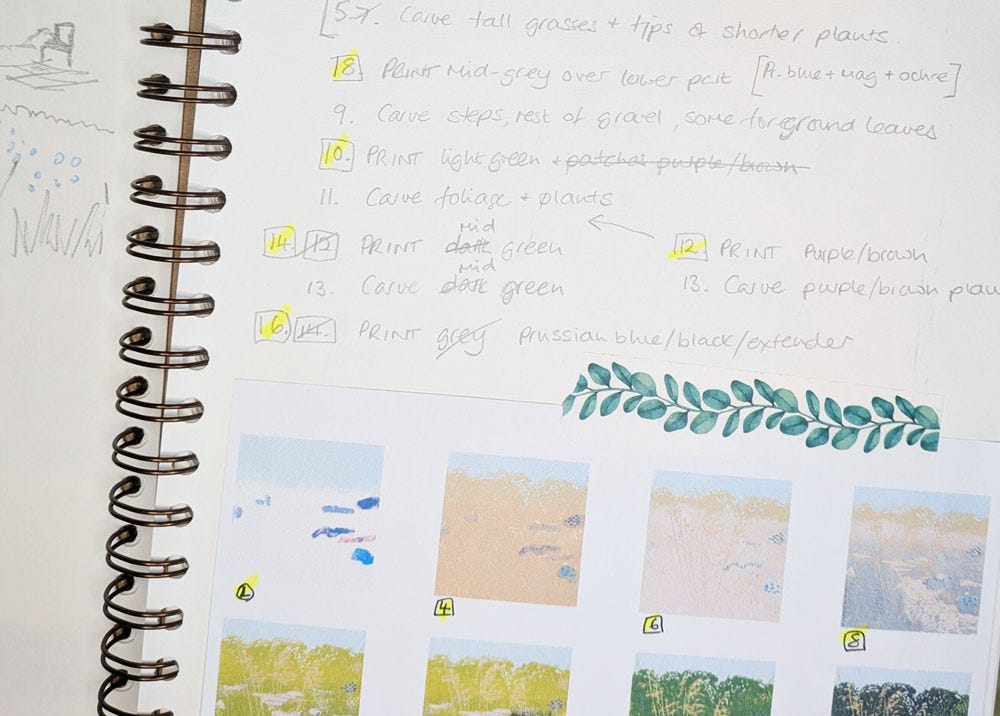 5.7. Carve tall grasses + tips of shorter plants.
8. PRINT Mid-grey over lower part [Pr. blue + mag + ochre]
9. Carve steps, rest of gravel, some foreground leaves
10. PRINT light green + patches purple/brown
11. Carve foliage + plants
14. 12. PRINT dark mid green
12. PRINT Purple/brown
13. Carve dark mid green
13. Carve purple/brown plan
16. 14. PRINT grey Prussian blue/black/extender
2
4
6
8